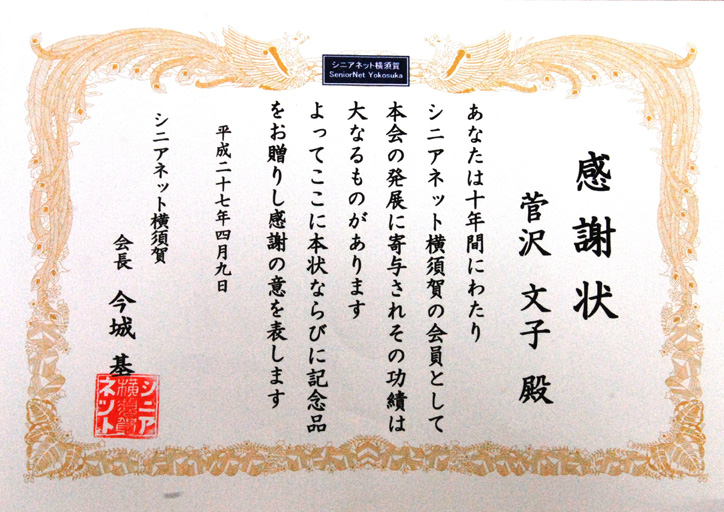 シニアネット横須賀
SeniorNet Yokosuka
感謝状
菅沢 文子 殿
あなたは十年間にわたり
シニアネット横須賀の会員として
本会の発展に寄与されその功績は
大なるものがあります
よってここに本状ならびに記念品
をお贈りし感謝の意を表します
平成二十七年四月九日
シニアネット横須賀
会長 今城 基
シニア
横須賀
ネット